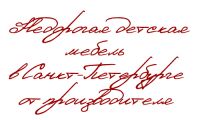 Недорогая детская
мебель
в Санкт-Петербурге
от производителя